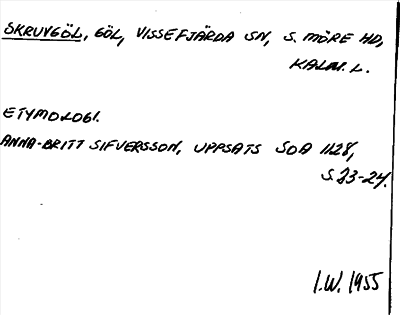 SKRUVGÖL, GÖL, VISSEFJÄRDA SN, S. MÖRE HD,
KALM. L.
ETYMOLOGI.
ANNA-BRITT SIFVERSSON, UPPSATS SOA 1128,
S. 23-24.
I.W. 1955